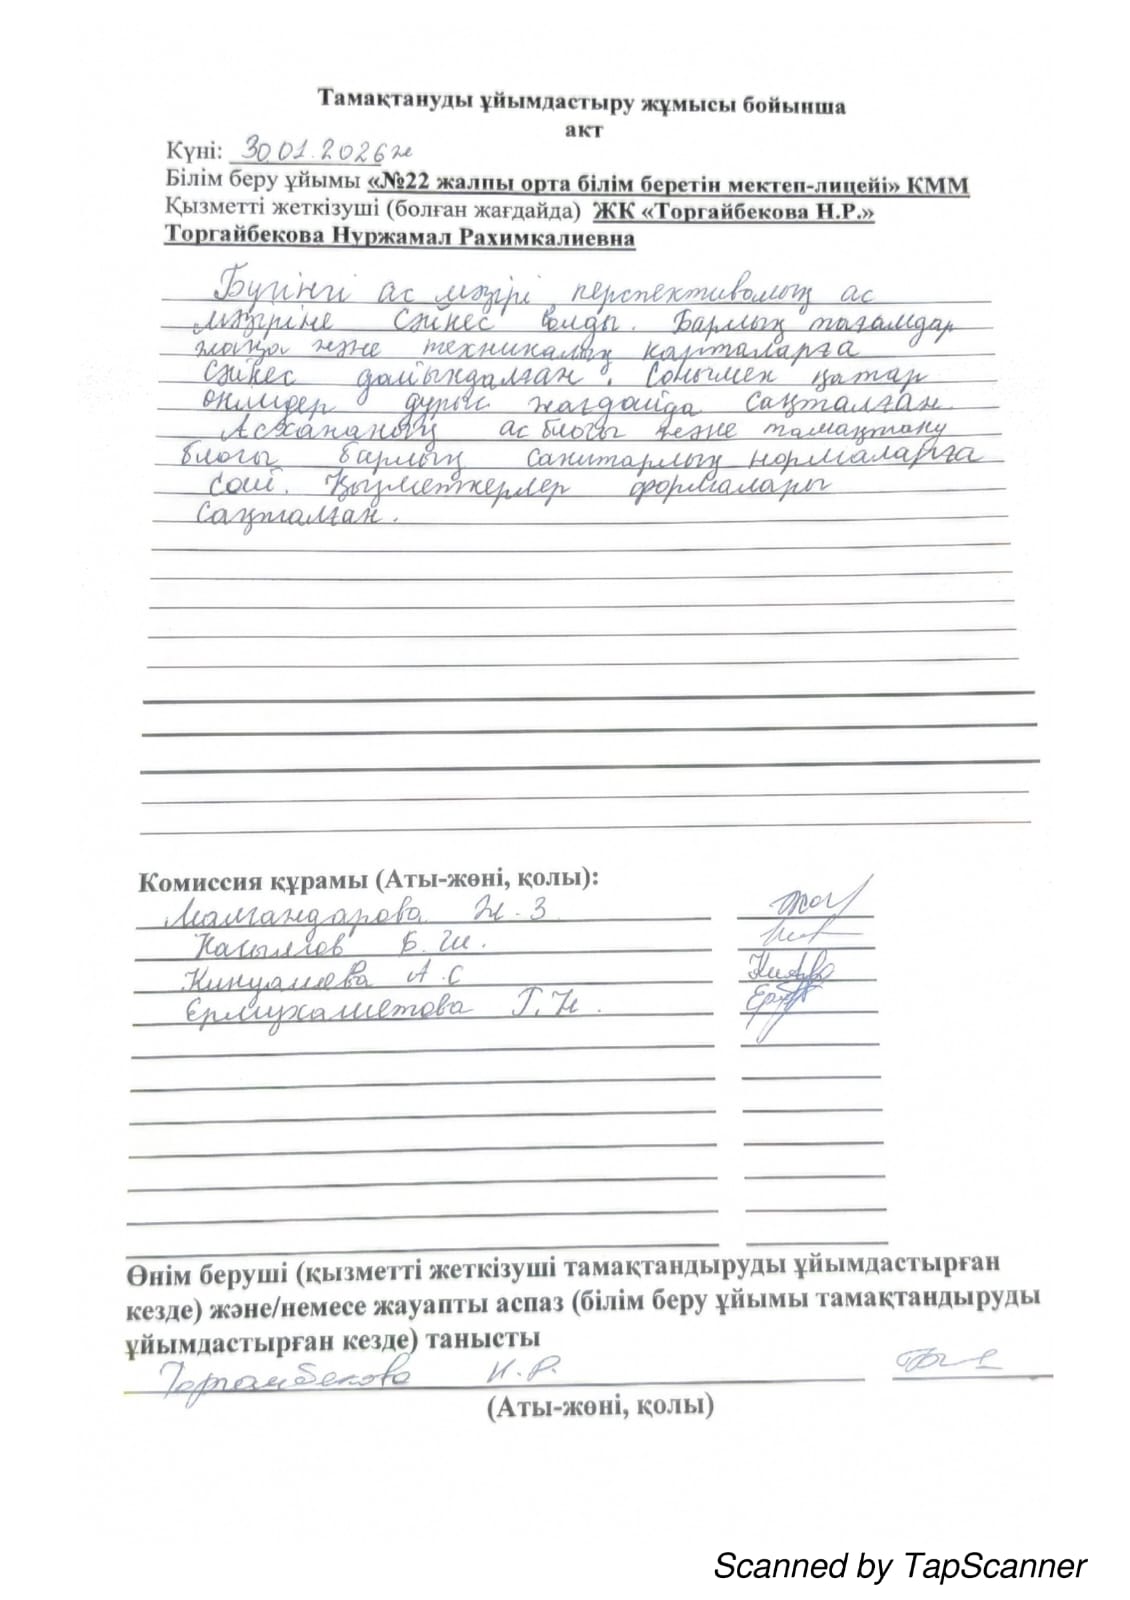 Тамақтануды ұйымдастыру жұмысы бойынша
акт
Күні: 30.01.2026ж
Білім беру ұйымы «№22 жалпы орта білім беретін мектеп-лицейі» КММ
Қызметті жеткізуші (болған жағдайда) ЖК «Торгайбекова Н.Р.»
Торгайбекова Нуржамал Рахимкалиевна
Бүгінгі ас мәзірі перспективалық ас
мәзіріне сәйкес болды. Барлық тағамдар
және техникалық карталарға
сәйкес дайындалған. Сонымен қатар
өнімдер дұрыс жағдайда сақталған.
Асхананың ас блогы және тамақтану
блогы барлық санитарлық нормаларға
сай. Қызметкерлер формалары
сақталған.
Комиссия құрамы (Аты-жөні, қолы):
Ж.З
Б.Ш.
А.С
Ермухаметова Г.Н.
Өнім беруші (қызметті жеткізуші тамақтандыруды ұйымдастырған
кезде) және/немесе жауапты аспаз (білім беру ұйымы тамақтандыруды
ұйымдастырған кезде) танысты
Торгайбекова Н.Р.
(Аты-жөні, қолы)
Scanned by TapScanner